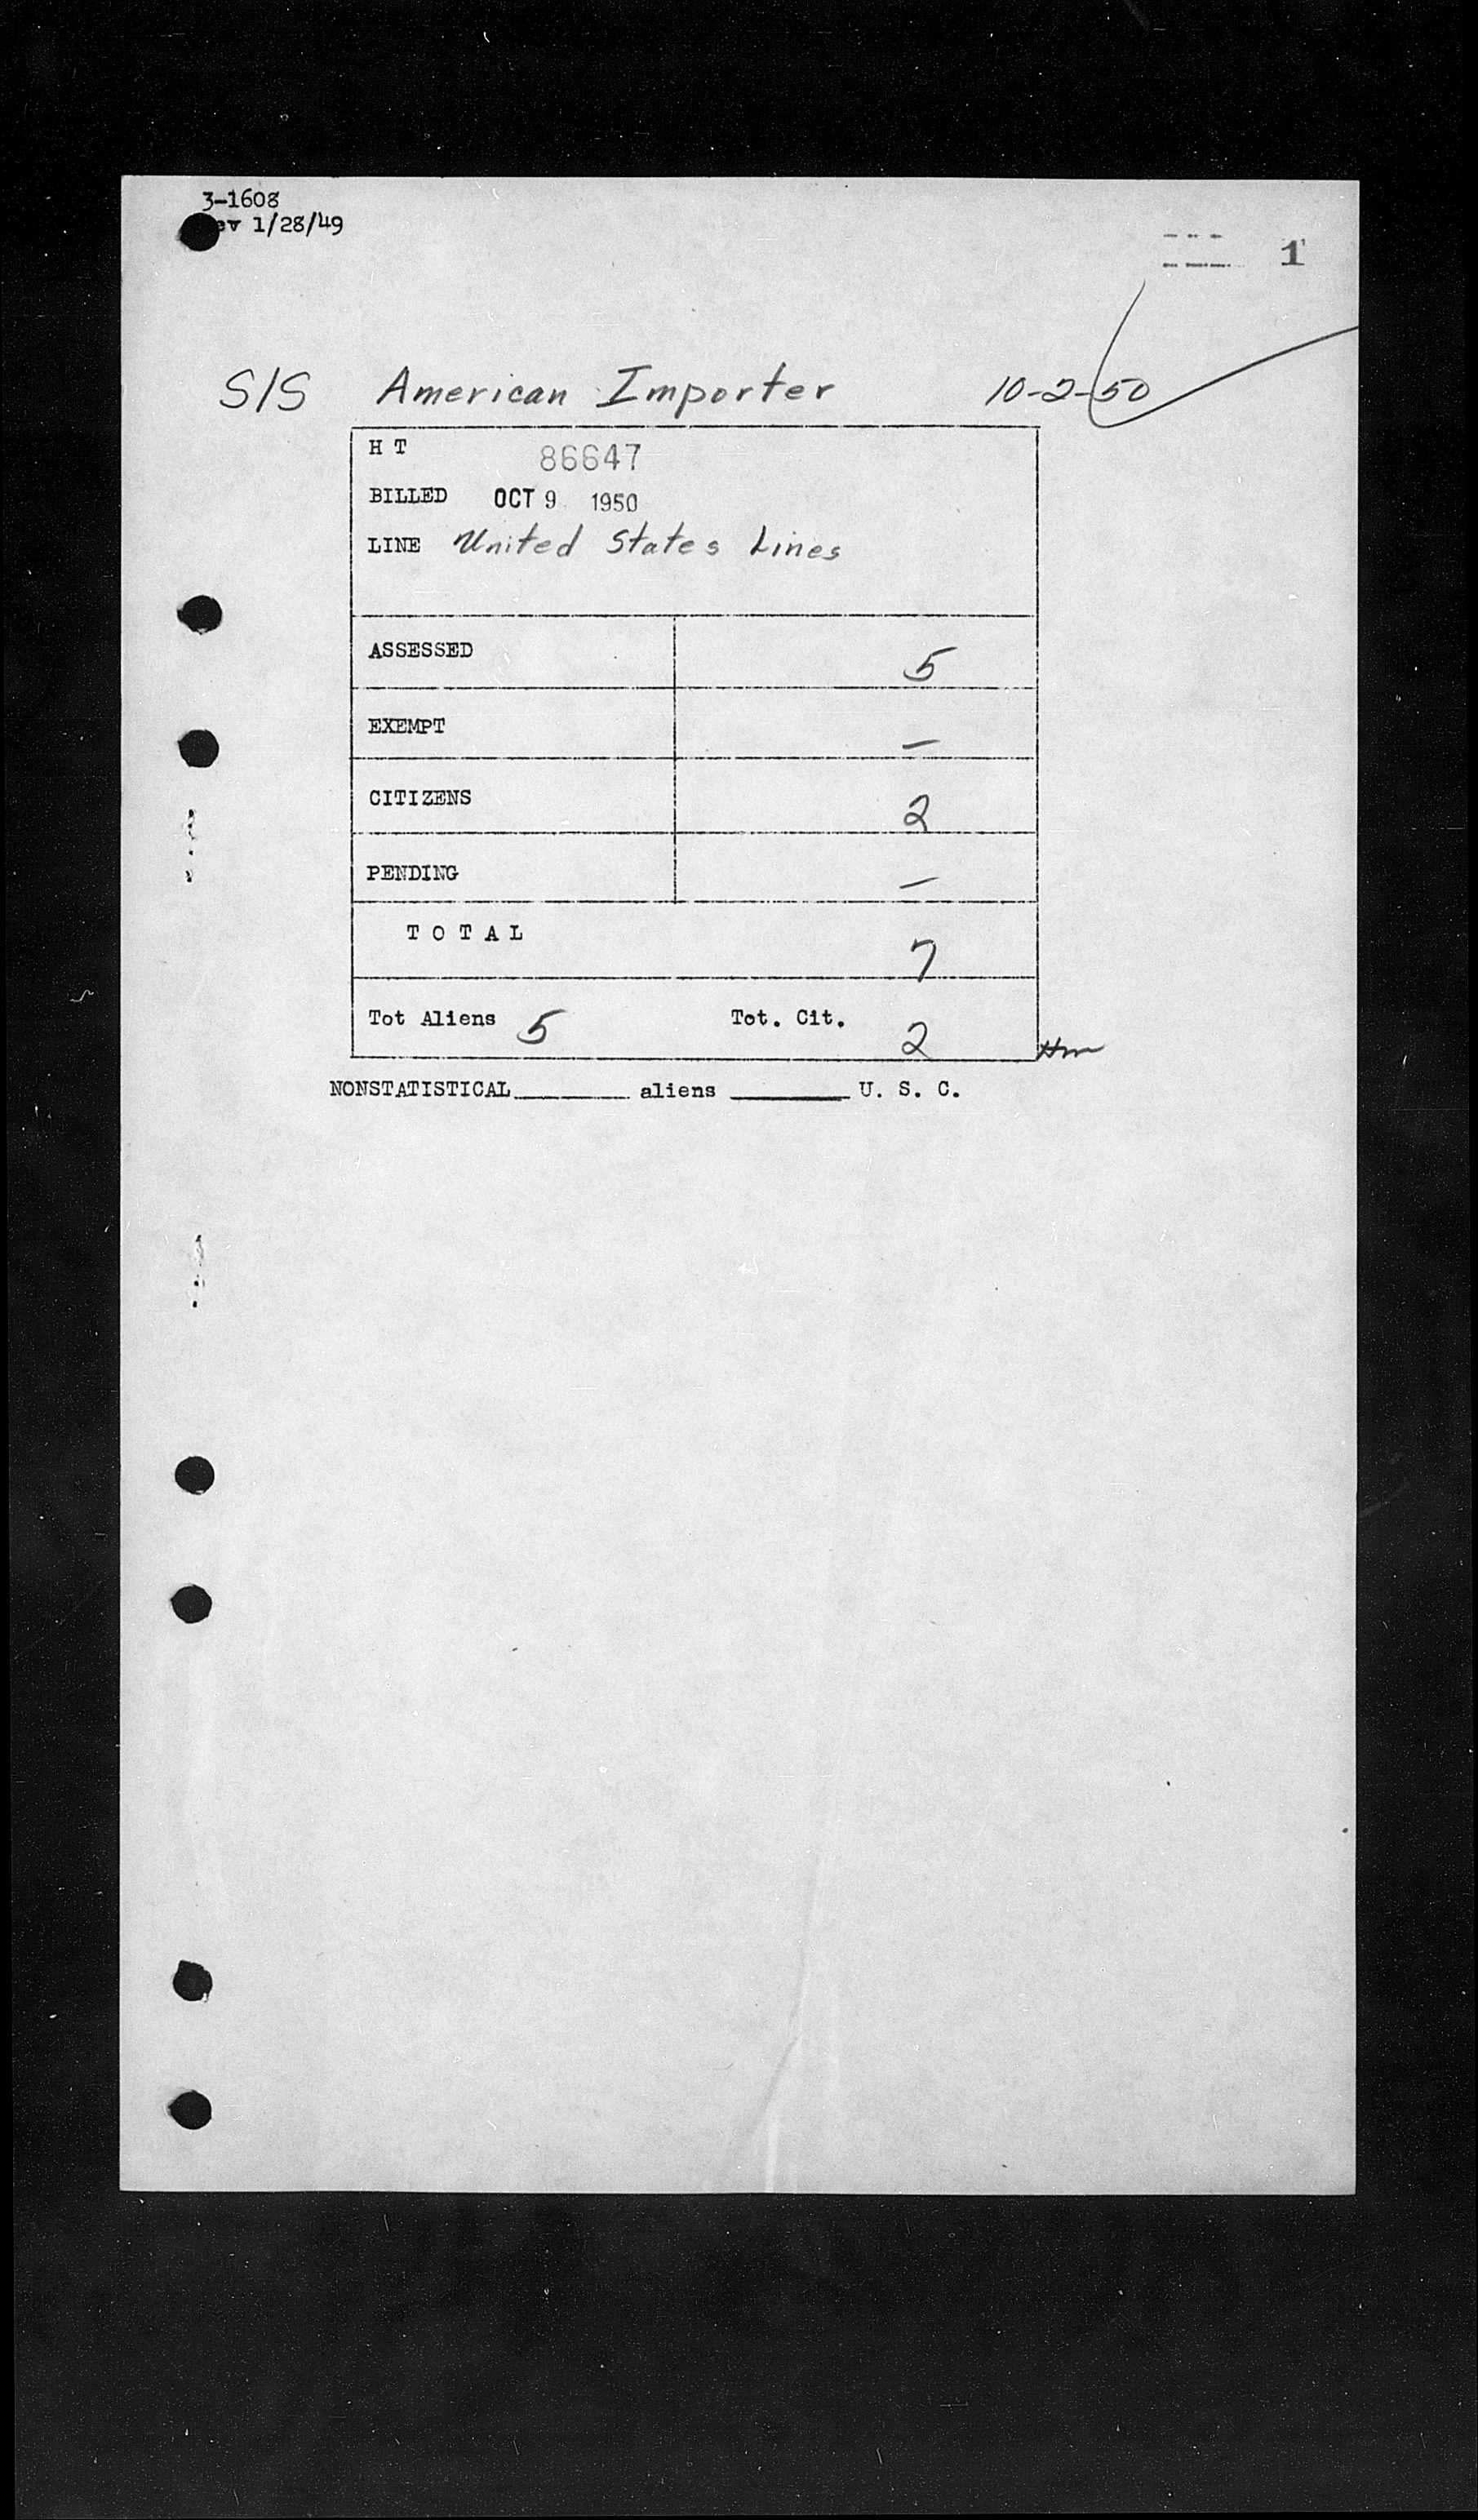 3-1608
ev 1/28/49
1
S/S American Importer 10-2-50
H T 86647
BILLED OCT 9 1950
LINE United States Lines
ASSESSED 5
EXEMPT —
CITIZENS 2
PENDING —
T O T A L 7
Tot Aliens 5 Tot. Cit. 2
NONSTATISTICAL________ aliens ________ U. S. C.